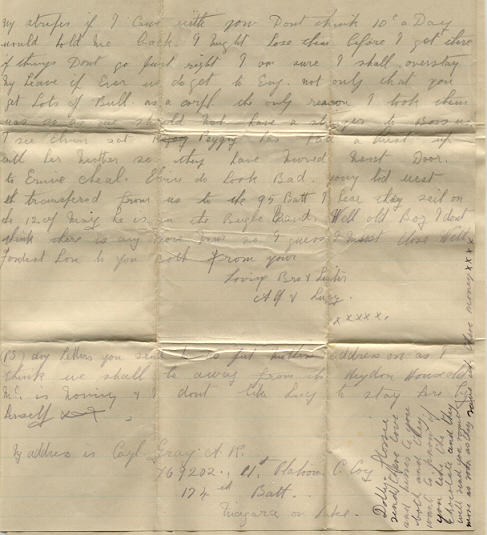 my stripes if I Came with you Dont think 10c a Day
would hold me Back. I might Lose them before I get there
if things Dont go just right I am sure I shall overstay
my Leave if Ever we do get to Eng. not only that you
get Lots of Bull. as a corpl. the only reason I took them
was so as we should not have a stranger to Boss us
I see Elvin sat Peggy has had a Bust up
with her mother so they have moved Next Door.
to Ernie Cheal. Ernie do Look Bad. young kid west
transfered from us to the 95 Batt I hear they sail on
the 12 of he is in the Bugle Band. Well old Boy I dont
think there is any more now so I guess I must close Well
Fondest Love to you both from your
Loving Bro & Sister
Alf & Lucy.
xxxxx.
any letters you send to us put mothers address on as I
think we shall be away from the Household
is moving & I dont like Lucy to stay here
herself
My address is Corpl Gray A. R.
769202., Platoon C. Coy
124 Batt.
Niagara on Lake.
Dolly & Flossie
send there love
and kisses to you
both and they
want to know if
you like the
and they
will send you some
more as soon as they save there money xxxx